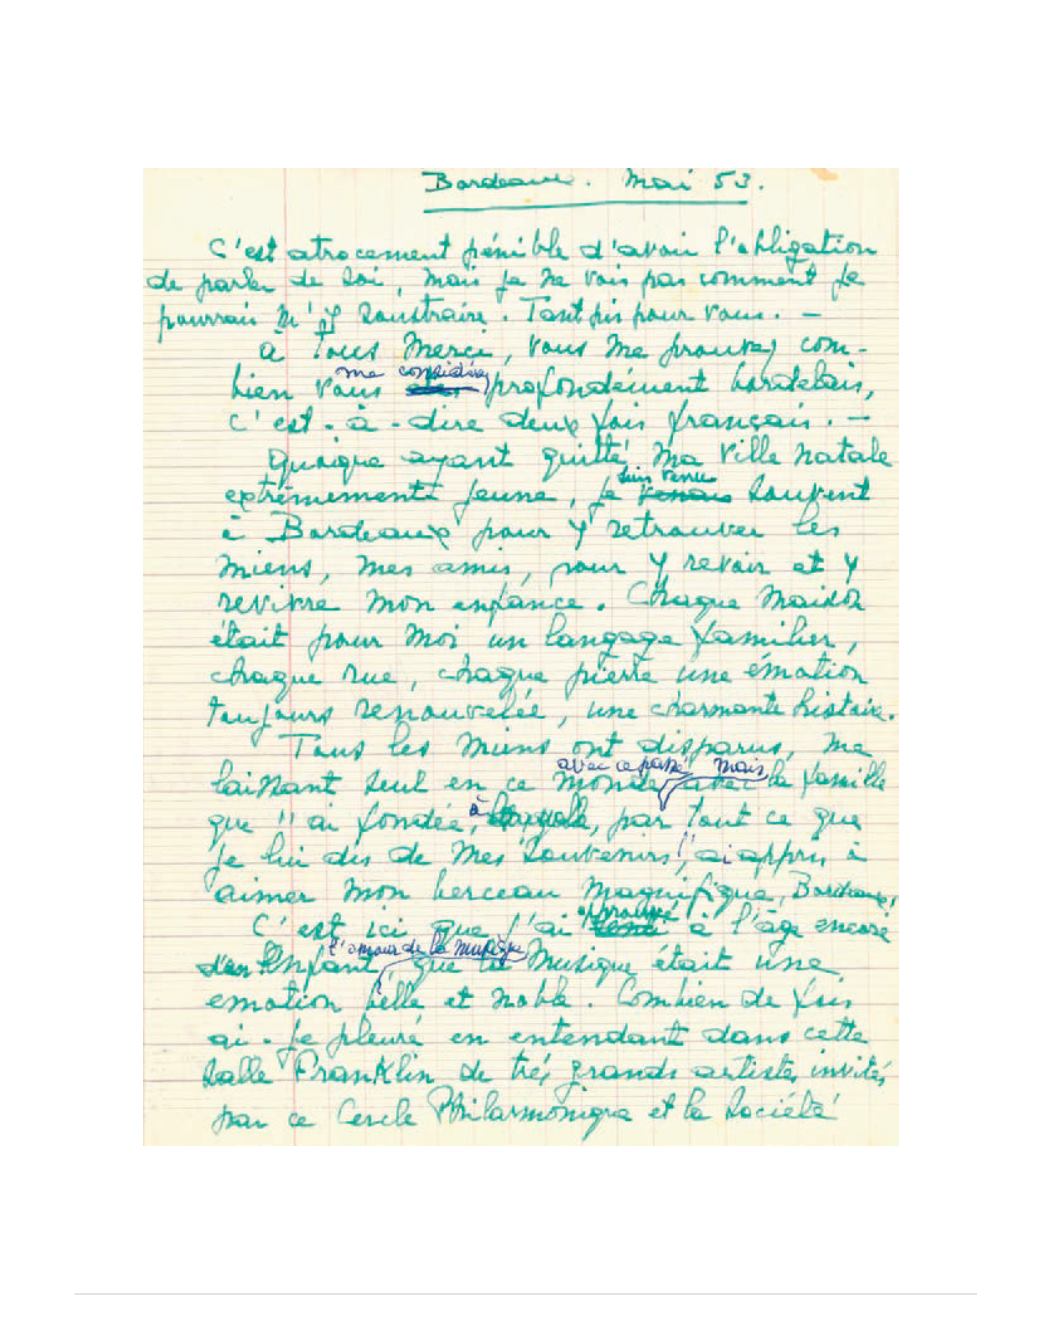 Bordeaux. Mai 53.
C'est atrocement pénible d'avoir l'obligation
de parler de soi, mais je ne vois pas comment je
pourrais m'y soustraire. Tant pis pour vous. —
à Tous Merci, vous me prouvez com-
me considérez
bien vous profondément bordelais,
c'est-à-dire deux fois français. —
Quoique ayant quitté ma ville natale
suis venu
extrêmement jeune, je venais souvent
à Bordeaux pour y retrouver les
miens, mes amis, pour y revoir et y
revivre mon enfance. Chaque maison
était pour moi un langage familier,
chaque rue, chaque pierre une émotion
toujours renouvelée, une charmante histoire.
Tous les miens ont disparus, me
avec ce passé mais
laissant seul en ce monde avec la famille
que j'ai fondée, à laquelle, par tout ce que
je lui dis de mes souvenirs j'ai appris à
aimer mon berceau magnifique, Bordeaux,
éprouvé
C'est ici que j'ai senti à l'âge encore
l'amour de la musique
d'un enfant, que la Musique était une
emotion belle et noble. Combien de fois
ai-je pleuré en entendant dans cette
salle Franklin de très grands artistes invités
par ce Cercle Philarmonique et la Société